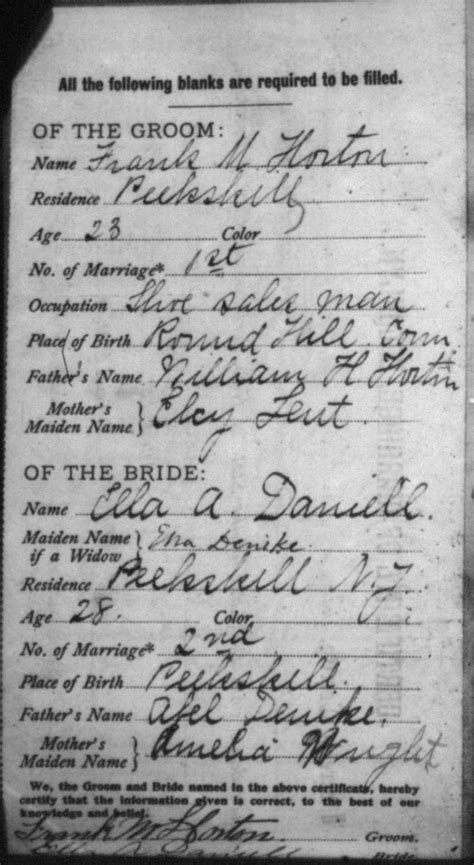 All the following blanks are required to be filled.
OF THE GROOM:
Name Frank M Horton
Residence Peekskill
Age 23 Color
No. of Marriage* 1st
Occupation Shoe sales man
Place of Birth Round Hill Conn
Father's Name William H Horton
Mother's
Maiden Name } Elcy Lent
OF THE BRIDE:
Name Ella A. Daniell.
Maiden Name
if a Widow } Ella Denike
Residence Peekskill N.Y.
Age 28. Color
No. of Marriage* 2nd
Place of Birth Peekskill.
Father's Name Abel Denike.
Mother's
Maiden Name } Amelia Wright
We, the Groom and Bride named in the above certificate, hereby
certify that the information given is correct, to the best of our
knowledge and belief.
Frank M Horton Groom.
Bride